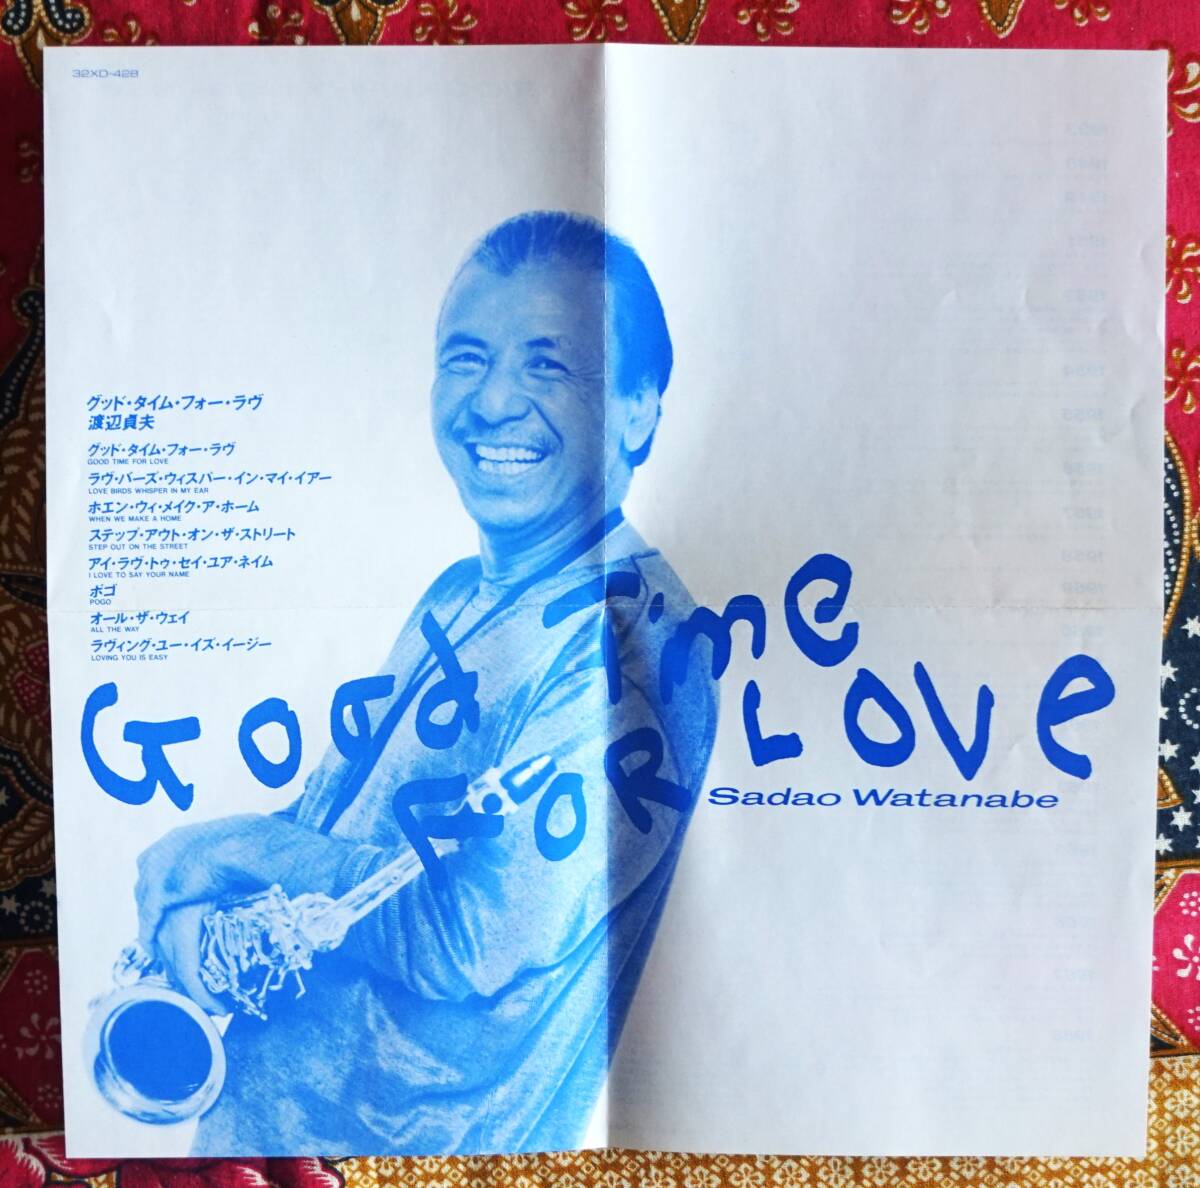 32XD-428
グッド・タイム・フォー・ラヴ
渡辺貞夫
グッド・タイム・フォー・ラヴ
GOOD TIME FOR LOVE
ラヴ・バーズ・ウィスパー・イン・マイ・イアー
LOVE BIRDS WHISPER IN MY EAR
ホエン・ウィ・メイク・ア・ホーム
WHEN WE MAKE A HOME
ステップ・アウト・オン・ザ・ストリート
STEP OUT ON THE STREET
アイ・ラヴ・トゥ・セイ・ユア・ネイム
I LOVE TO SAY YOUR NAME
ポゴ
POGO
オール・ザ・ウェイ
ALL THE WAY
ラヴィング・ユー・イズ・イージー
LOVING YOU IS EASY
Good Time
FOR LOVe
Sadao Watanabe